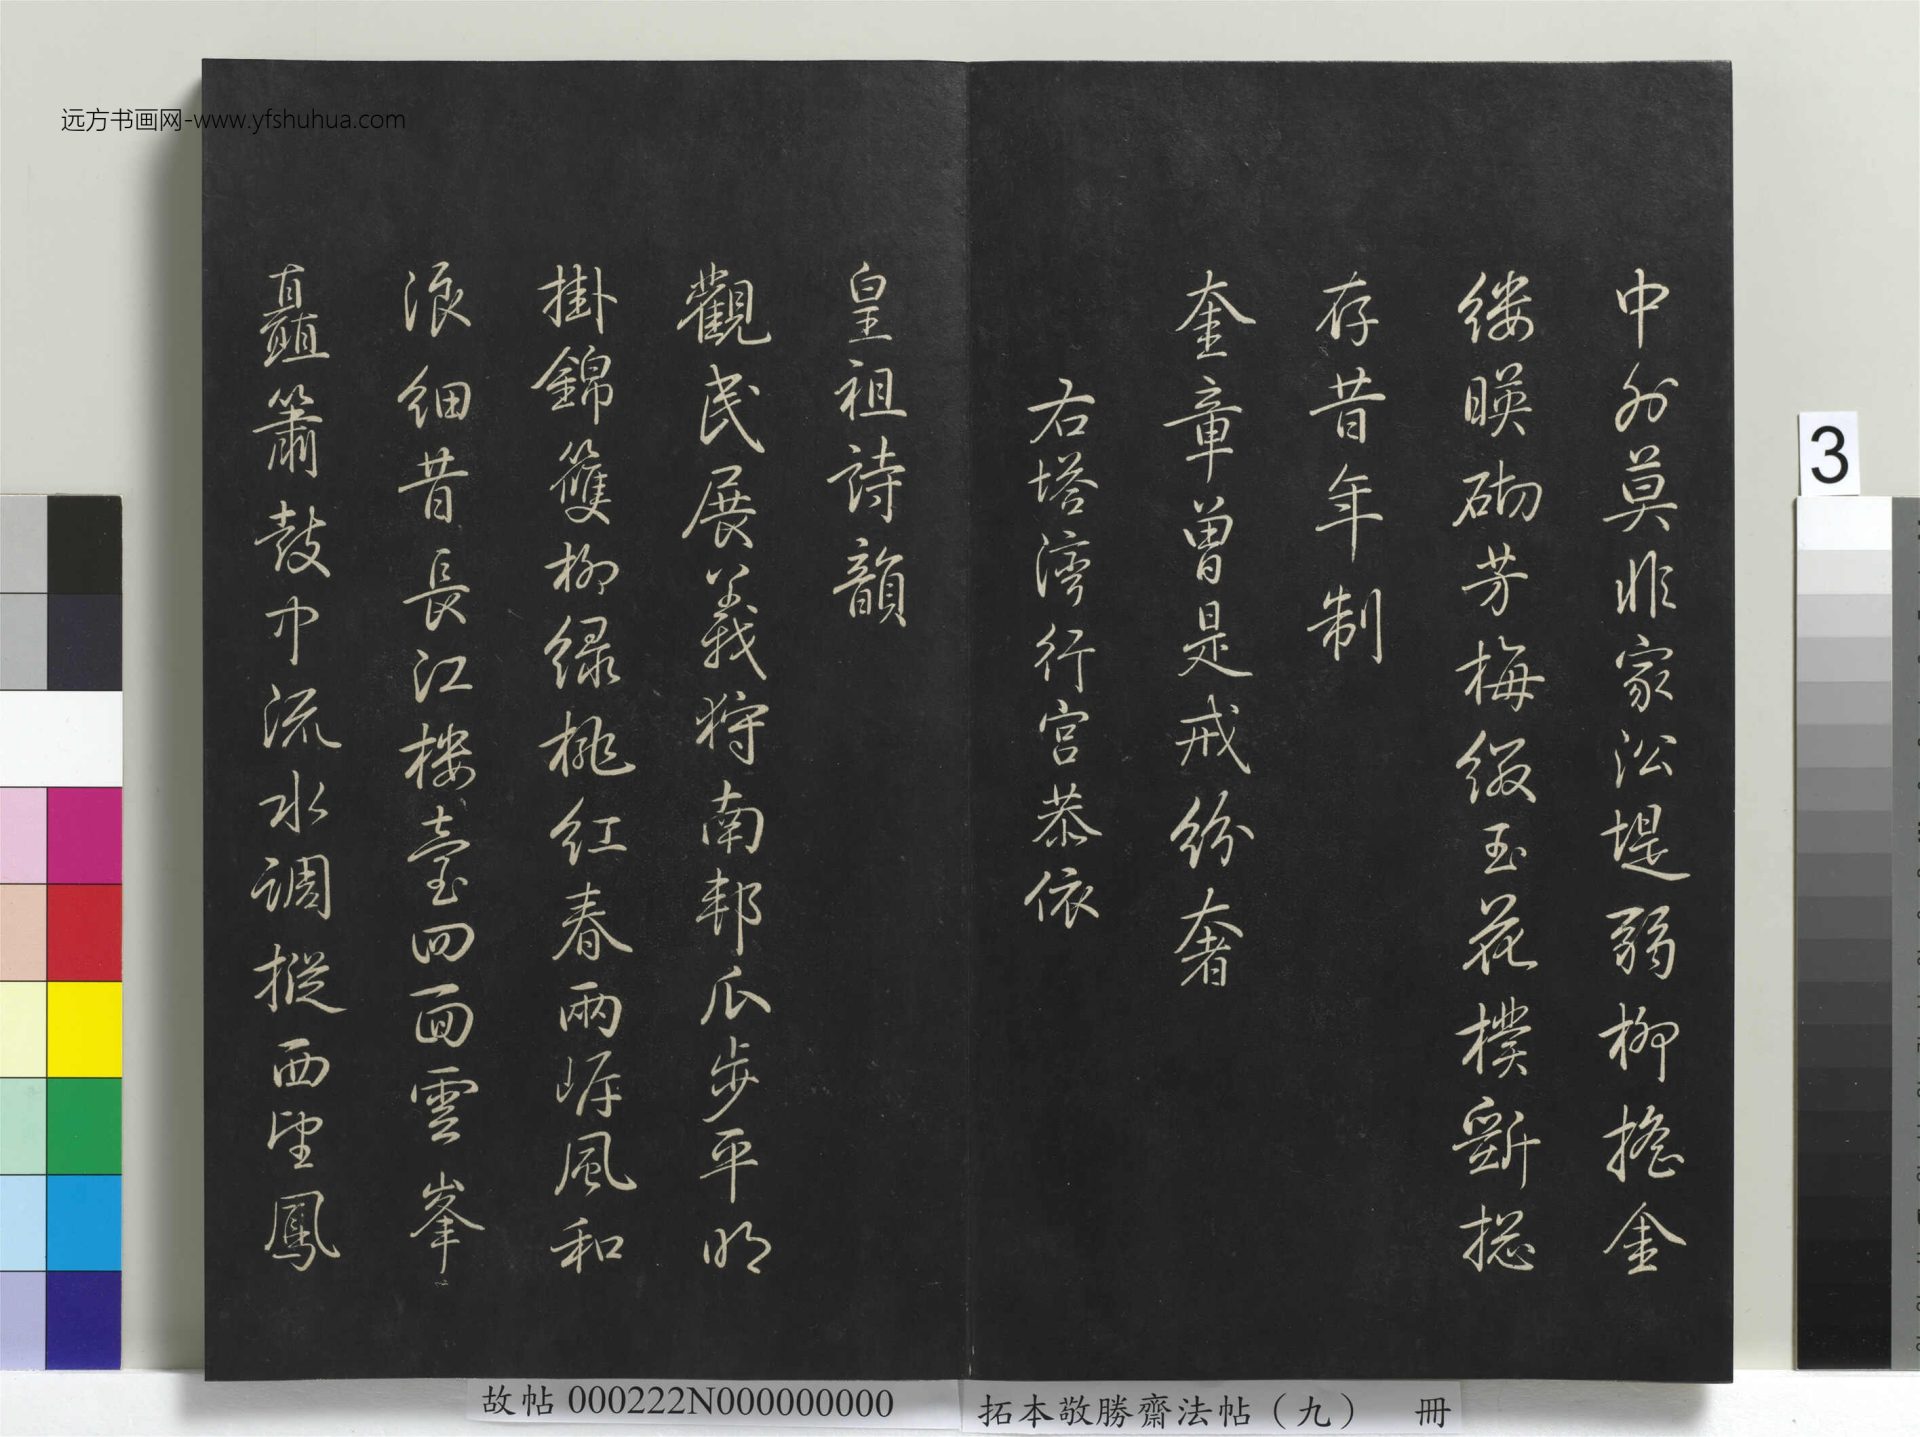 远方书画网-www.yfshuhua.com
中外莫非家沿堤弱柳搖金
縷暎砌芳梅綴玉花樸斵揔
存昔年制
奎章曽是戒紛奢
右塔灣行宮恭依
皇祖詩韻
觀民展義狩南邦瓜步平明
掛錦篗柳緑桃紅春兩㟁風和
浪細昔長江樓臺四面雲峯
矗簫鼓中流水調摐西望鳳
3
故帖 000222N000000000
拓本敬勝齋法帖（九） 冊